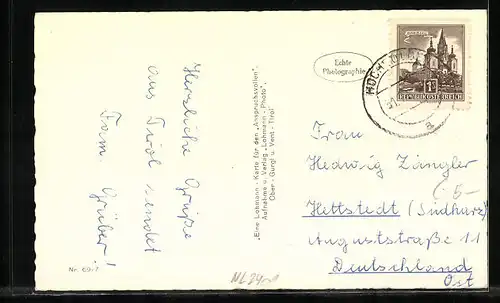 Herzliche Grüße
aus Tirol sendet
Fam. Grüber!
Nr. 69-7
"Eine Lohmann-Karte für den Anspruchsvollen".
Aufnahme u. Verlag "Lohmann-Photo",
Ober-Gurgl u. Vent - Tirol
Echte
Photographie
REPUBLIK ÖSTERREICH
Frau
Hedwig Zängler
Hettstedt (Südharz)
Auguststraße 11
Deutschland
Ost
5-